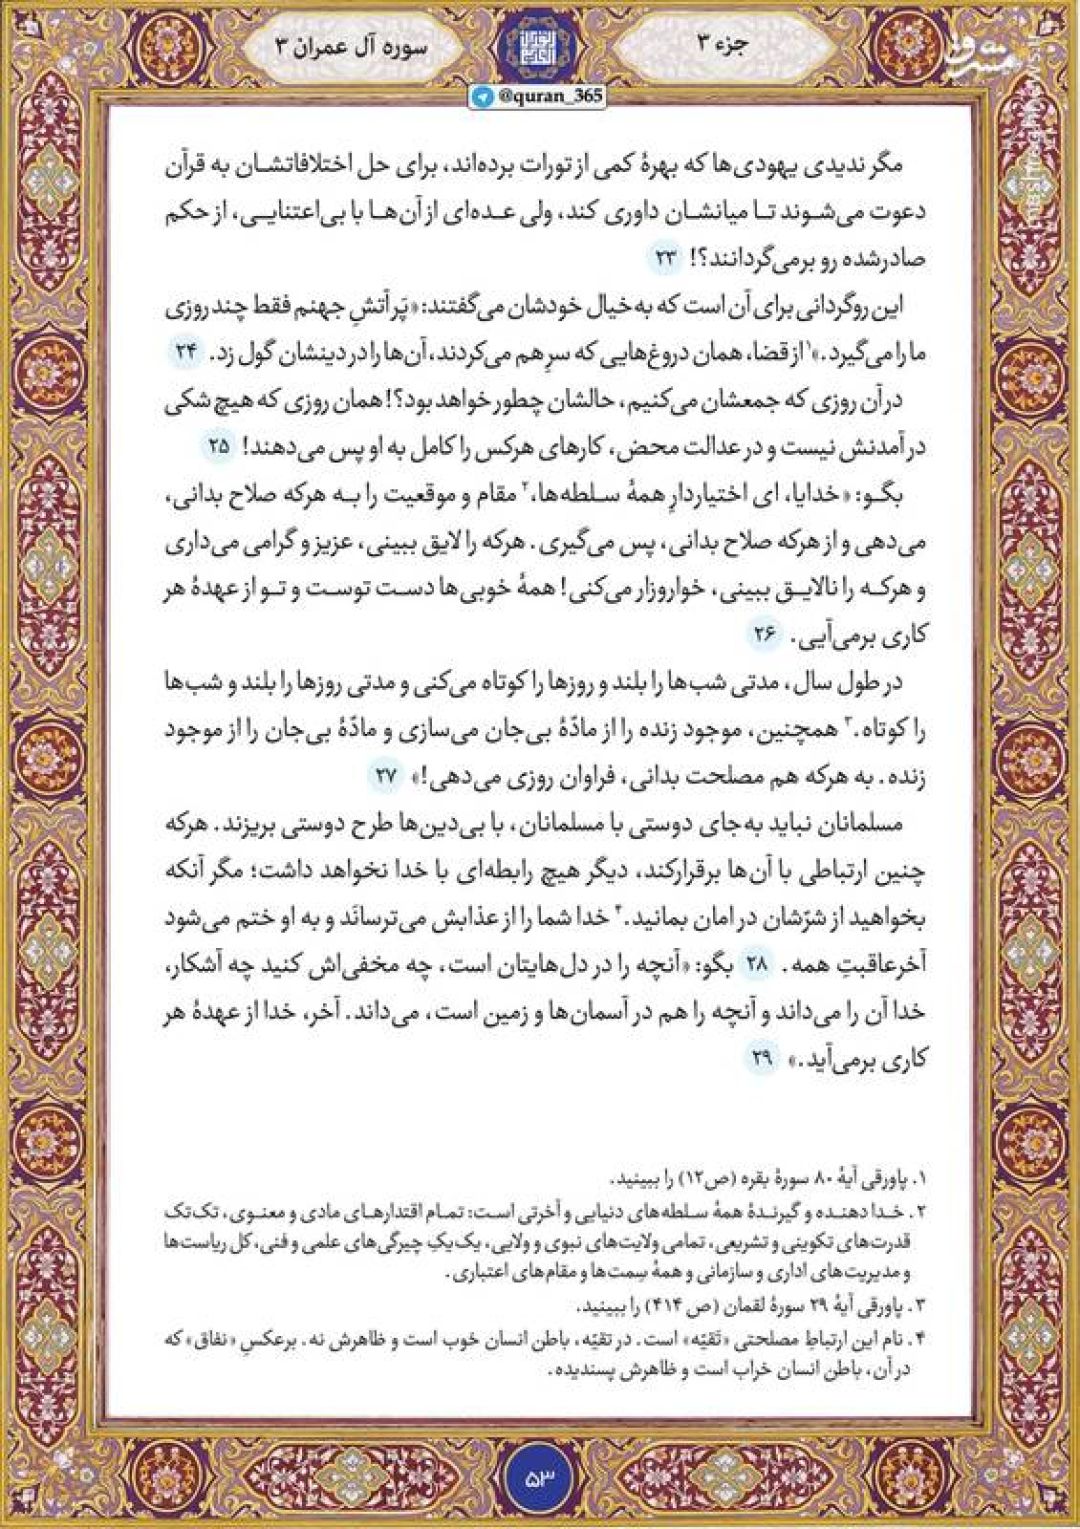 جزء ۳
سوره آل عمران ۳
@quran_365
مشرق
mashreghnews.ir
مگر ندیدی یهودی‌ها که بهرهٔ کمی از تورات برده‌اند، برای حل اختلافاتشان به قرآن
دعوت می‌شوند تا میانشان داوری کند، ولی عده‌ای از آن‌ها با بی‌اعتنایی، از حکم
صادرشده رو برمی‌گردانند؟! ۲۳
این روگردانی برای آن است که به‌خیال خودشان می‌گفتند: «پَر آتشِ جهنم فقط چند روزی
ما را می‌گیرد.»۱ از قضا، همان دروغ‌هایی که سرِهم می‌کردند، آن‌ها را در دینشان گول زد. ۲۴
در آن روزی که جمعشان می‌کنیم، حالشان چطور خواهد بود؟! همان روزی که هیچ شکی
در آمدنش نیست و در عدالت محض، کارهای هرکس را کامل به او پس می‌دهند! ۲۵
بگو: «خدایا، ای اختیاردارِ همهٔ سلطه‌ها،۲ مقام و موقعیت را به هرکه صلاح بدانی،
می‌دهی و از هرکه صلاح بدانی، پس می‌گیری. هرکه را لایق ببینی، عزیز و گرامی می‌داری
و هرکه را نالایق ببینی، خوار و زار می‌کنی! همهٔ خوبی‌ها دست توست و تو از عهدهٔ هر
کاری برمی‌آیی. ۲۶
در طول سال، مدتی شب‌ها را بلند و روزها را کوتاه می‌کنی و مدتی روزها را بلند و شب‌ها
را کوتاه.۳ همچنین، موجود زنده را از مادّهٔ بی‌جان می‌سازی و مادّهٔ بی‌جان را از موجود
زنده. به هرکه هم مصلحت بدانی، فراوان روزی می‌دهی!» ۲۷
مسلمانان نباید به‌جای دوستی با مسلمانان، با بی‌دین‌ها طرح دوستی بریزند. هرکه
چنین ارتباطی با آن‌ها برقرارکند، دیگر هیچ رابطه‌ای با خدا نخواهد داشت؛ مگر آنکه
بخواهید از شرّشان در امان بمانید.۴ خدا شما را از عذابش می‌ترسانَد و به او ختم می‌شود
آخرعاقبتِ همه. ۲۸ بگو: «آنچه را در دل‌هایتان است، چه مخفی‌اش کنید چه آشکار،
خدا آن را می‌داند و آنچه را هم در آسمان‌ها و زمین است، می‌داند. آخر، خدا از عهدهٔ هر
کاری برمی‌آید.» ۲۹
۱. پاورقی آیهٔ ۸۰ سورهٔ بقره (ص۱۲) را ببینید.
۲. خدا دهنده و گیرندهٔ همهٔ سلطه‌های دنیایی و آخرتی است: تمام اقتدارهای مادی و معنوی، تک‌تک
قدرت‌های تکوینی و تشریعی، تمامی ولایت‌های نبوی و ولایی، یک‌یکِ چیرگی‌های علمی و فنی، کل ریاست‌ها
و مدیریت‌های اداری و سازمانی و همهٔ سِمت‌ها و مقام‌های اعتباری.
۳. پاورقی آیهٔ ۲۹ سورهٔ لقمان (ص ۴۱۴) را ببینید.
۴. نام این ارتباطِ مصلحتی «تَقیّه» است. در تقیّه، باطن انسان خوب است و ظاهرش نه. برعکسِ «نفاق» که
در آن، باطن انسان خراب است و ظاهرش پسندیده.
۵۳